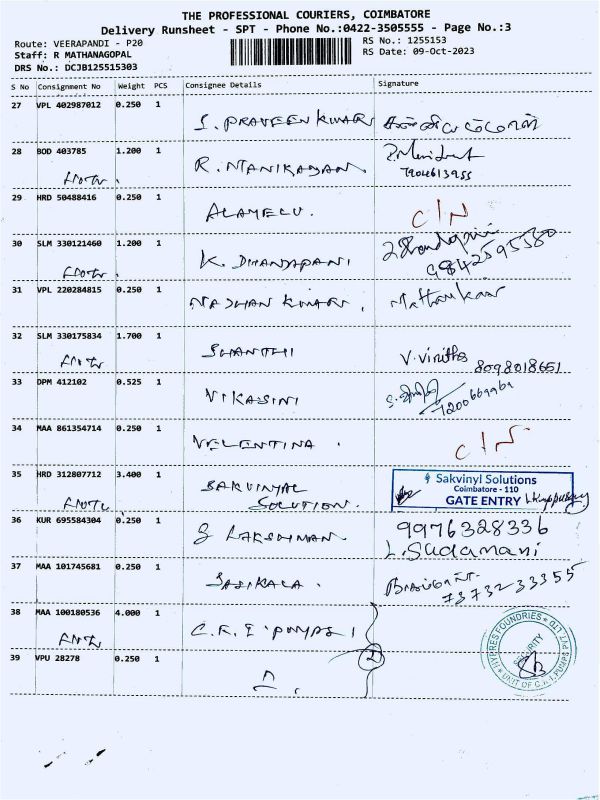 THE PROFESSIONAL COURIERS, COIMBATORE
Delivery Runsheet - SPT - Phone No.:0422-3505555 - Page No.:3
Route: VEERAPANDI - P20
RS No.: 1255153
Staff: R MATHANAGOPAL
RS Date: 09-Oct-2023
DRS No.: DCJB125515303
S No Consignment No Weight PCS Consignee Details Signature
27 VPL 402987012 0.250 1 S. PRAVEEN KUMAR
28 BOD 403785 1.200 1 R. MANIKANDAN
7904613955
29 HRD 50488416 0.250 1 ALAMELU. C/N
30 SLM 330121460 1.200 1 K. DHANDAPANI
9842595580
31 VPL 220284815 0.250 1 MADHAN KUMAR.
32 SLM 330175834 1.700 1 SHANTHI V. Vinitha 8098018651
33 DPM 412102 0.525 1 VIKASINI
34 MAA 861354714 0.250 1 VELENTINA. C/N
35 HRD 312807712 3.400 1 SAKVINYAL
SOLUTION.
Sakvinyl Solutions
Coimbatore - 110
GATE ENTRY
36 KUR 695584304 0.250 1 S LAKSHMAN. 9976328336
L. Sudamani
37 MAA 101745681 0.250 1 SASIKALA.
7373233355
38 MAA 100180536 4.000 1 C.R.I PUMPS
2
39 VPU 28278 0.250 1
HYPRES FOUNDRIES PVT LTD
SECURITY
UNIT OF C.R.I. PUMPS